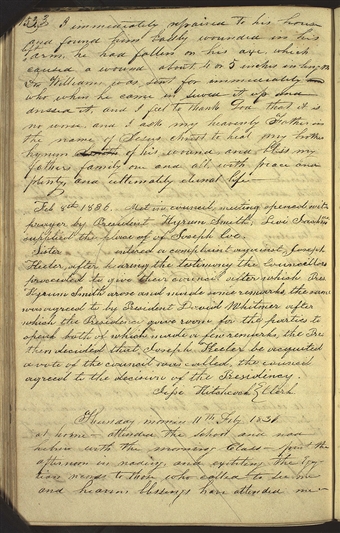 I immediately repaired to his house
and found him badly wounded in his
arm, he had fallen on his axe which
caused a wound about 4 or 5 inches in
Dr Williams was sent for immediately
who when he came in sewed it up and
dressed it, and I feel to thank God that it is
no worse and I ask my heavenly Father in
the name of Jesus Christ to heal my brother
hyrum of his wound and bless my
fathers family one and all with peace and
plenty, and ultimately eternal life
Feb 8th 1836. Met in council, meeting opened with
prayer by President Hyrum Smith. Levi
supplied the place of Joseph Coe.
Sister entered a complaint against Joseph
Keeler, after hearing the testimony the Councillors
proceeded to give their council, after which Pres
Hyrum Smith arose and made some remarks, the same
was agreed to by President David Whitmer after
which the Presidency gave room for the parties to
speak both of which made a few remarks, the Pre
then decided that Joseph Keeler be acquitted
a vote of the council was called, the council
agreed to the decision of the Presidency
Jesse Hitchcock Clerk
Thursday morning 11th Feb. 1836
at home — attended the school and read
hebrew with the morning Class — spent the
afternoon in reading and exhibiting the Egy
tian records to those who called to see me
and heavens blessings have attended me —